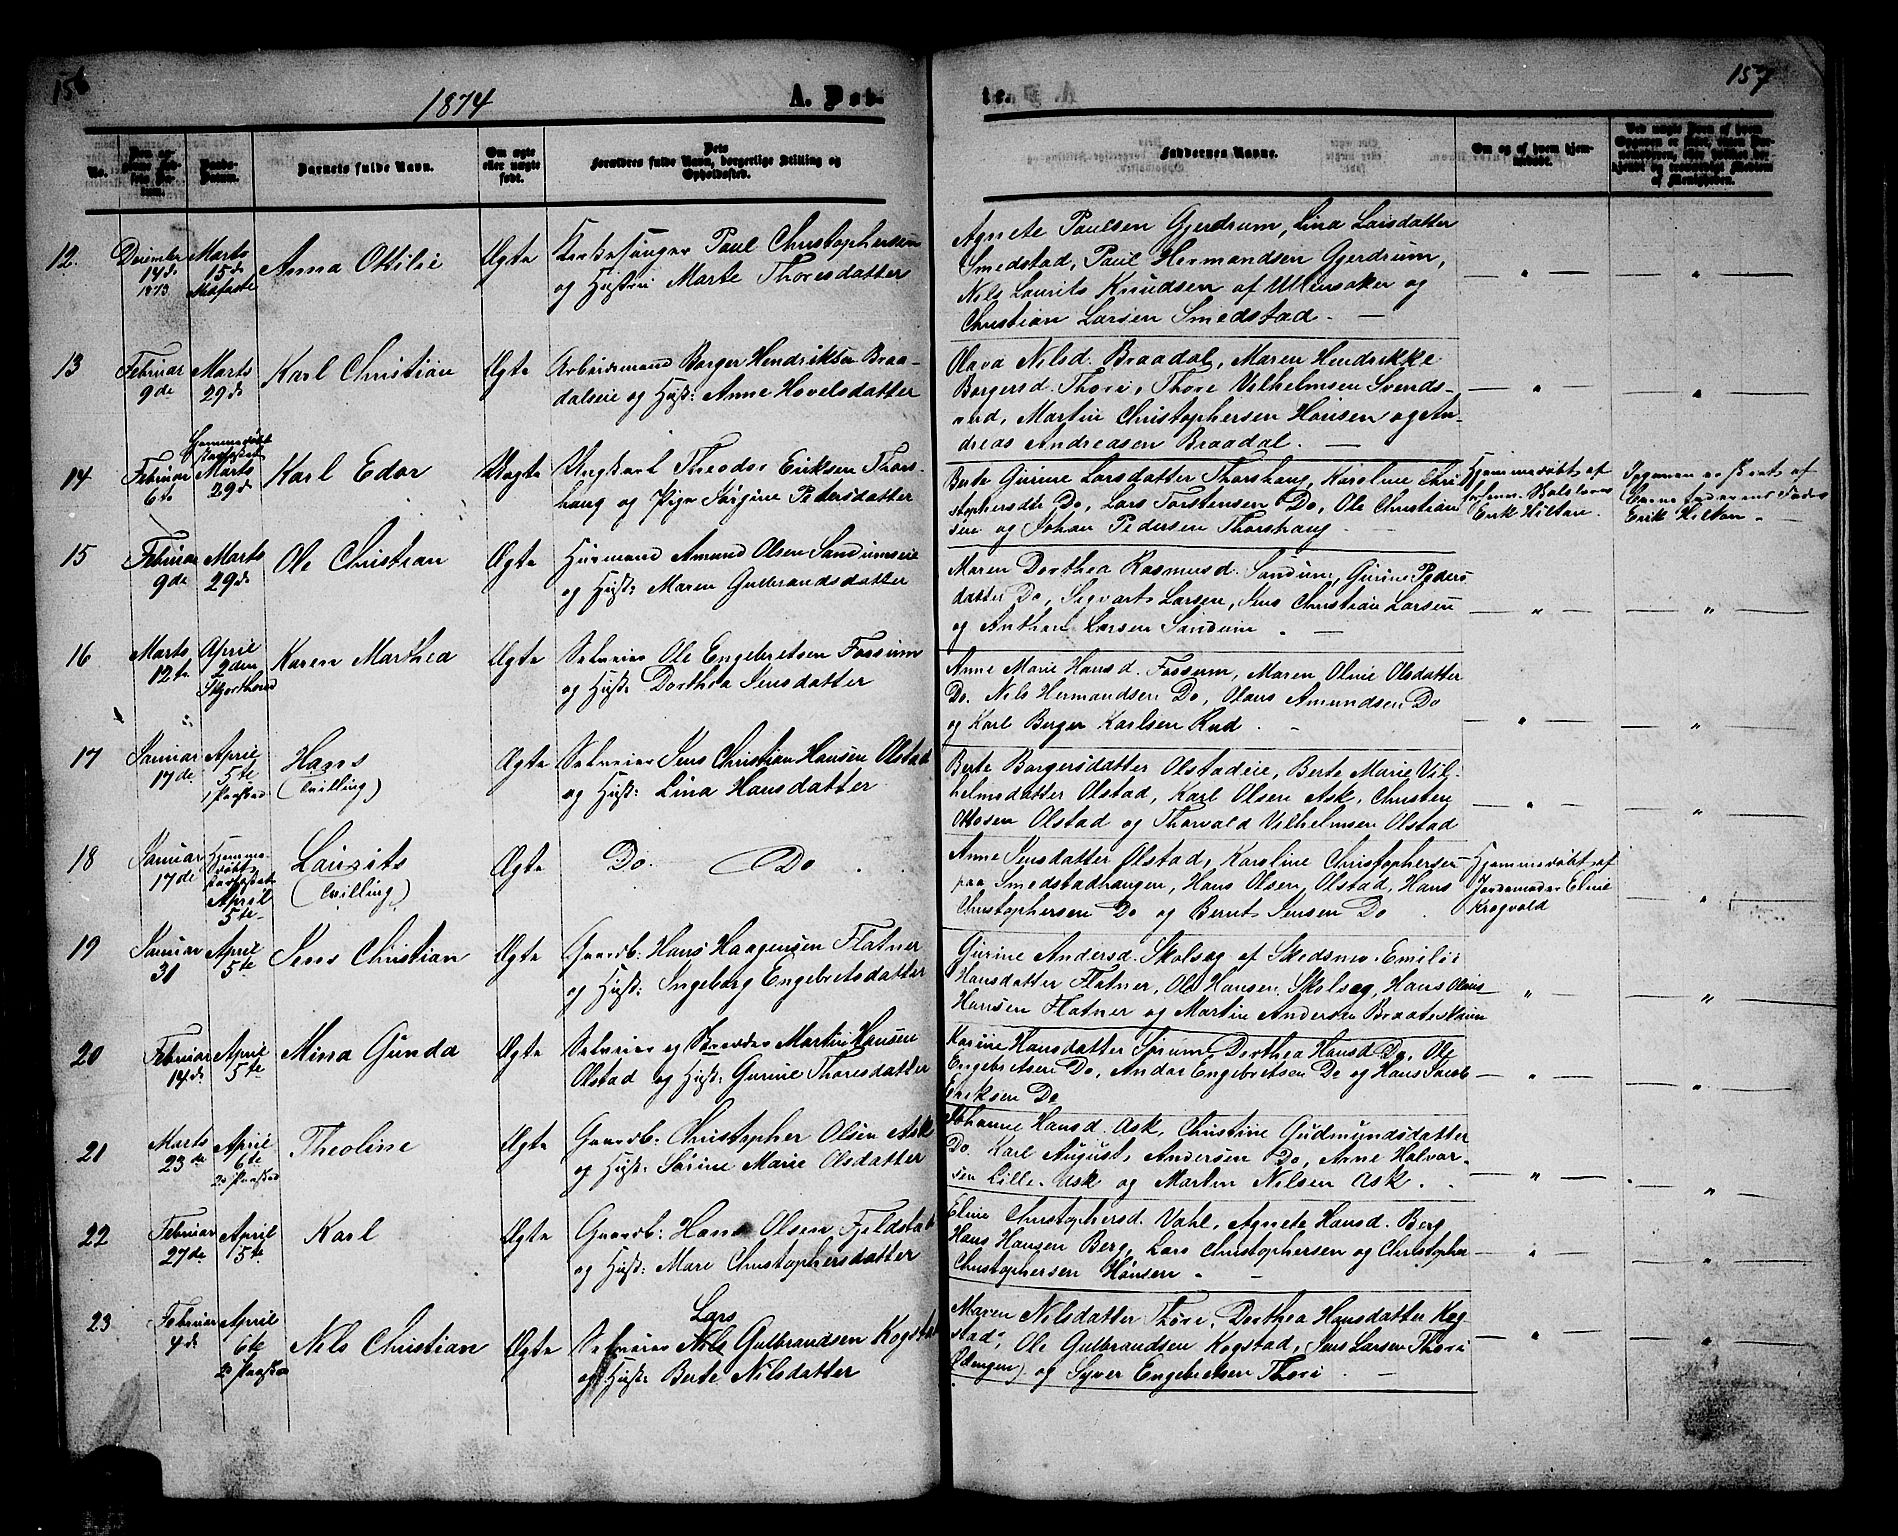 156
1874
A. Fød-
te.
157
No.
Daabs-Datum.
Barnets fulde Navn.
Om ægte eller uægte født.
Dets Forældres fulde Navn, borgerlige Stilling og Opholdssted.
Faddernes Navne.
Om og af hvem hjemmedøbt.
12. December 14de 1873 Marts 15de Anna Othilie Ægte Kirkesanger Paul Christophersen
og Hustru Marte Thoresdatter
Agnete Paulsen Gjerdrum, Lina Larsdatter
Smedstad, Paul Hermandsen Gjerdrum,
Nils Laurits Knudsen af Ullensaker og
Christian Larsen Smedstad. —
13 Februar 9de Marts 29de Karl Christian Ægte Arbeidsmand Borger Hendriksen Braa-
daleie og Hust: Anne Hovelsdatter
Olava Nilsd. Braadal, Maren Hendrikke
Borgersd. Thori, Thore Vilhelmsen Svends-
rud, Martin Christophersen Hønsen og An-
dreas Andreasen Braadal. —
14 Februar 6te Hjemmedøbt Marts 29de Karl Edor Uægte Ungkarl Theodor Eriksen Thors-
haug og Pige Jørgine Pedersdatter
Berte Gurine Larsdatter Thorshaug, Karoline Chri-
stophersdtr Do, Lars Torstensen Do, Ole Christian-
sen og Johan Pedersen Thorshaug —
Hjemmedøbt af
Erik Hilton.
Erik Hilton. —
15 Februar 9de Marts 29de Ole Christian Ægte Huusmand Amund Olsen Sandumseie
og Hust: Maren Gulbrandsdatter
Maren Dorthea Rasmusd. Sandum, Gurine Peders-
datter Do, Sigvart Larsen, Jens Christian Larsen
og Anthon Larsen Sandum. —
16 Marts 12te April 2den Skjærthorsd Karen Marthea Ægte Selveier Ole Engebretsen Fossum
og Hust: Dorthea Jensdatter
Anne Marie Hansd. Fossum, Maren Oline Olsdatter
Do. Nils Hermandsen Do, Olaus Amundsen Do
og Karl Berger Karlsen Rud. —
17 Januar 17de April 5te 1 Paaskd Hans
(Tvilling) Ægte Selveier Jens Christian Hansen Olstad
og Hust: Lina Hansdatter
Berte Borgersdatter Olstadeie, Berte Marie Vil-
helmsdatter Olstad, Karl Olsen Ask, Christen
Ottosen Olstad og Thorvald Vilhelmsen Olstad
18 Januar 17de Hjemmedøbt April 5te Laurits
(Tvilling) Ægte Do. Do.
Anne Jensdatter Olstad, Karoline Christophersen
paa Smedstadhaugen, Hans Olsen Olstad, Hans
Christophersen Do og Bernt Jensen Do.
Hjemmedøbt af
Jordemoder Eline
Krogvold
19 Januar 31 April 5te Jens Christian Ægte Gaardb: Hans Haagensen Flatner
og Hust: Ingeborg Engebretsdatter
Gurine Andersd. Skolseg af Skedsmo, Emilie
Hansdatter Flatner, Ole Hansen Skolseg, Hans Olaus
Hansen Flatner og Martin Andersen Braateskauen
20 Februar 14de April 5te Mina Gunda Ægte Selveier og Skrædder Martin Hansen
Olstad og Hust: Gurine Thoresdatter
Karine Hansdatter Sørum, Dorthea Hansd Do, Ole
Engebretsen Do, Andor Engebretsen Do og Hans Jacob
Eriksen Do
21 Marts 23de April 6te 2 Paaskd Theoline Ægte Gaardb: Christopher Olsen Ask
og Hust: Sørine Marie Olsdatter
Johanne Hansd. Ask, Christine Gudmundsdatter
Do. Karl August Andersen Do, Arne Halvor-
sen Lille-Ask og Morten Nilsen Ask.
22 Februar 27de April 5te Karl Ægte Gaardb: Hans Olsen Fjeldstad
og Hust: Mari Christophersdatter
Eline Christophersd. Vahl, Agnete Hansd. Berg
Hans Hansen Berg, Lars Christophersen og Christopher
Christophersen Hønsen. —
23 Februar 4de April 6te 2 Paaskd Nils Christian Ægte Selveier Lars Nils Gulbrandsen Kogstad
og Hust: Berte Nilsdatter
Maren Nilsdatter Thori, Dorthea Hansdatter Kog-
stad, Ole Gulbrandsen Kogstad, Jens Larsen Thori
(Ødengen) og Syver Engebretsen Thori. —